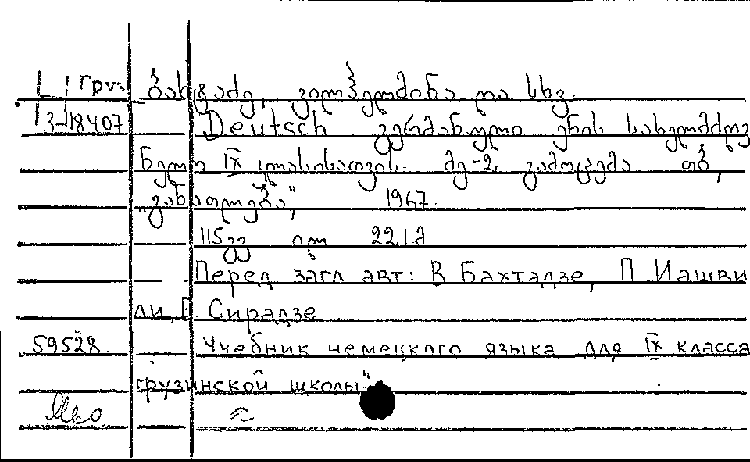 груз ბახტაძე, ვილჰელმინა და სხვ.
3-18407 Deutsch გერმანული ენის სახელმძღვ
ნელო IX კლასისათვის. მე-2 გამოცემა თბ,
"განათლება", 1967.
115 გვ 22 სმ
Перед загл авт: В Бахтадзе, П Иашви
ли, Г. Сирадзе
59528 Учебник немецкого языка для IX класса
грузинской школы"